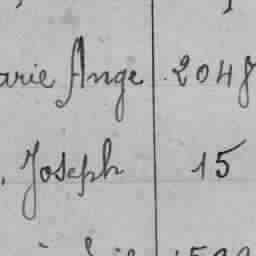 arie Ange 2048
. Joseph 15